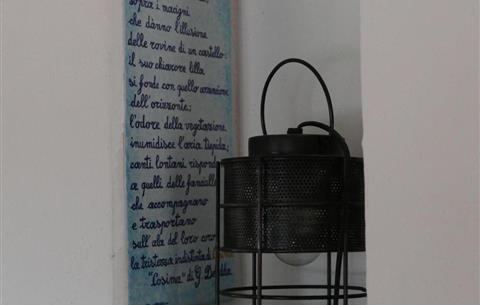 sopra i macigni
che dànno l'illusione
delle rovine di un castello:
il suo chiarore lilla
si fonde con quello arancione
dell'orizzonte;
l'odore della vegetazione
inumidisce l'aria tiepida;
canti lontani rispondo
a quelli delle fanciulle
che accompagnano
e trasportano
sull'ala del loro coro
la tristezza indistinta di
"Cosima" di G. De